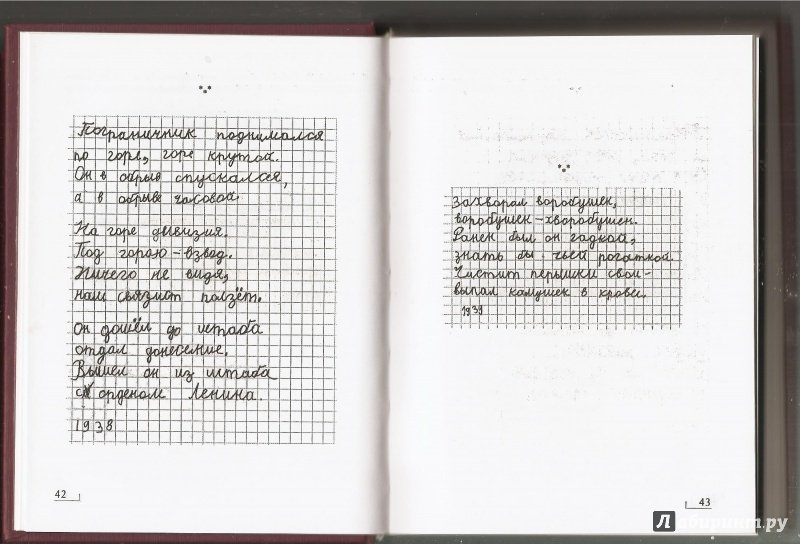 Пограничник поднимался
по горе, горе крутой.
Он в обрыв спускался,
а в обрыве часовой.
На горе дивизия.
Под горою – взвод.
Ничего не видя,
наш связист ползёт.
Он дошёл до штаба
отдал донесение.
Вышел он из штаба
с орденом Ленина.
1938
42
Захворал воробушек,
воробушек – хворобушек.
Ранен был он гадкой,
знать бы чьей рогаткой.
Чистит пёрышки свои –
выпал камушек в крови.
1939
43
Лабиринт.ру